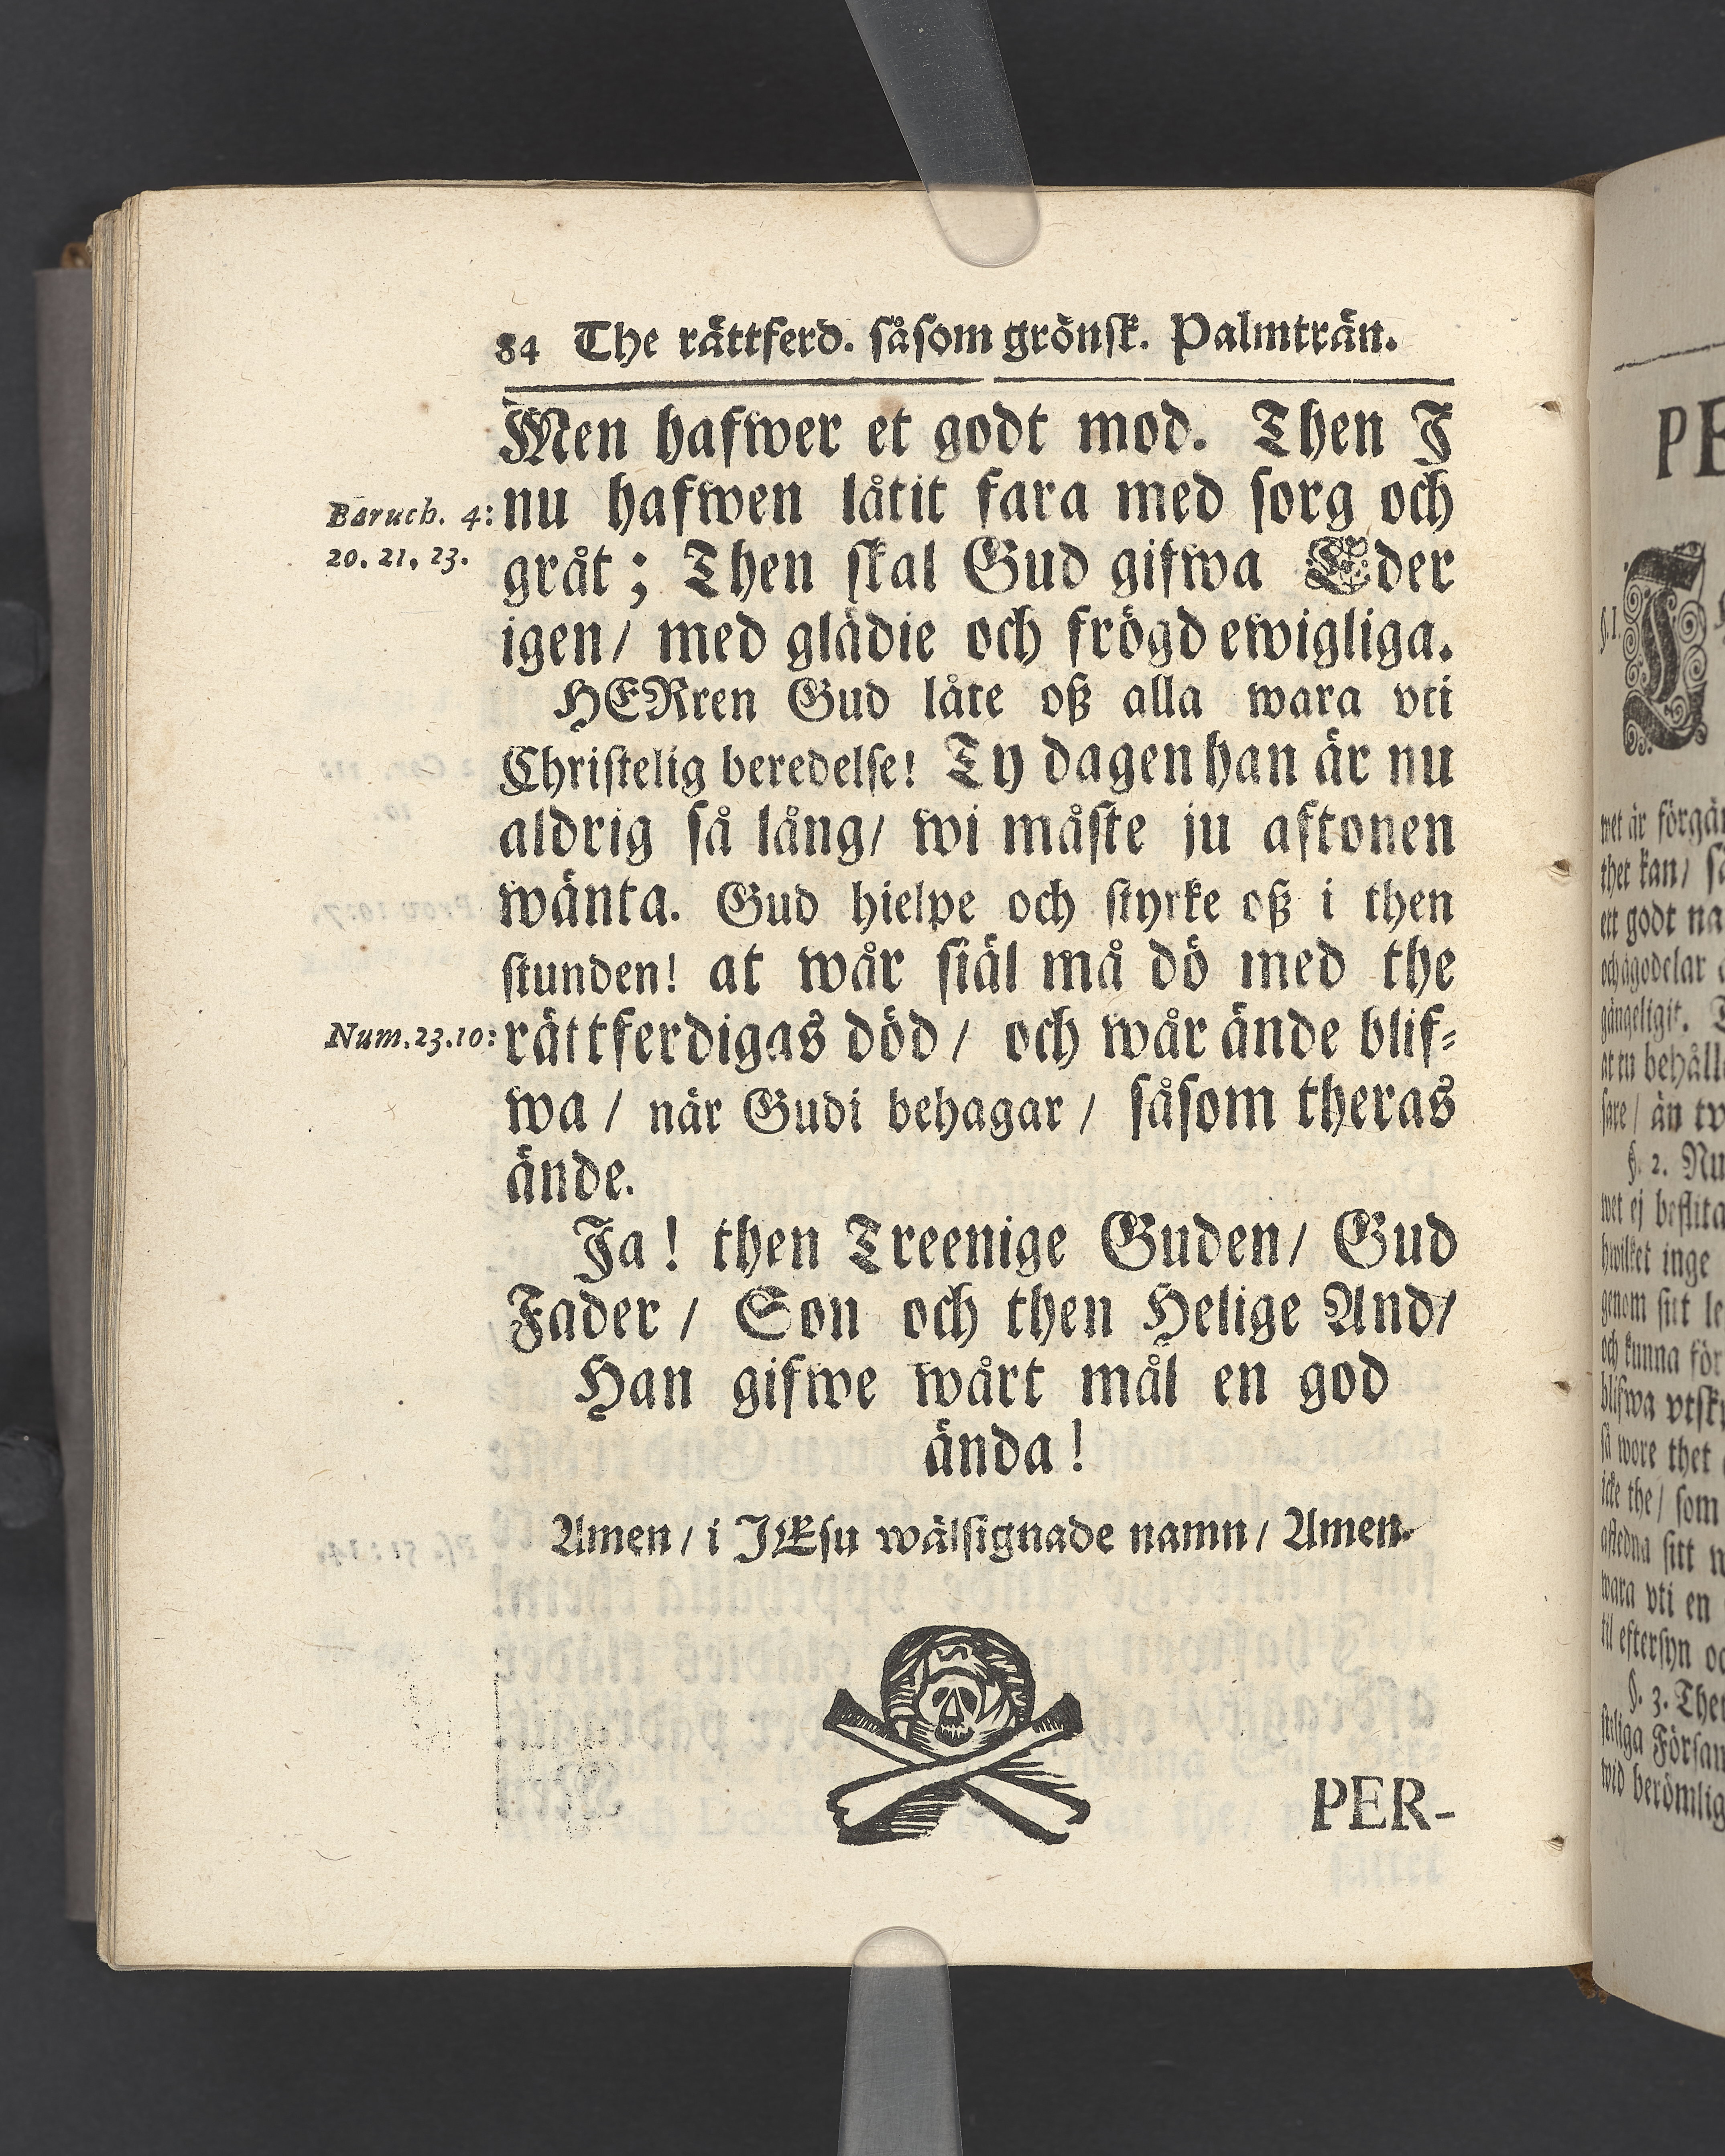 84 The rättferd. såsom grönsk. Palmträn.
Men hafwer et godt mod. Then I
Baruch. 4: nu hafwen låtit fara med sorg och
20. 21. 23. gråt; Then skal Gud gifwa Eder
igen/ med glädie och frögd ewigliga.
HERren Gud låte oß alla wara vti
Christelig beredelse! Ty dagen han är nu
aldrig så lång/ wi måste ju aftonen
wänta. Gud hielpe och styrke oß i then
stunden! at wår siäl må dö med the
Num. 23. 10: rättferdigas död/ och wår ände blif-
wa/ när Gudi behagar/ såsom theras
ände.
Ja! then Treenige Guden/ Gud
Fader/ Son och then Helige And/
Han gifwe wårt mål en god
ända!
Amen/ i JEsu wälsignade namn/ Amen.
PER-
PE
§. 1.
wet är förgän
thet kan/ så
ett godt na
och ägodelar
gängeligit.
at tu behåll
sare/ än tw
§. 2. Nu
wet ej beflita
hwilket inge
genom sitt le
och kunna för
blifwa vtsk
så wore thet
icke the/ som
afledna sitt n
wara vti en
til eftersyn oc
§. 3. Then
steliga Försam
wid berömlig